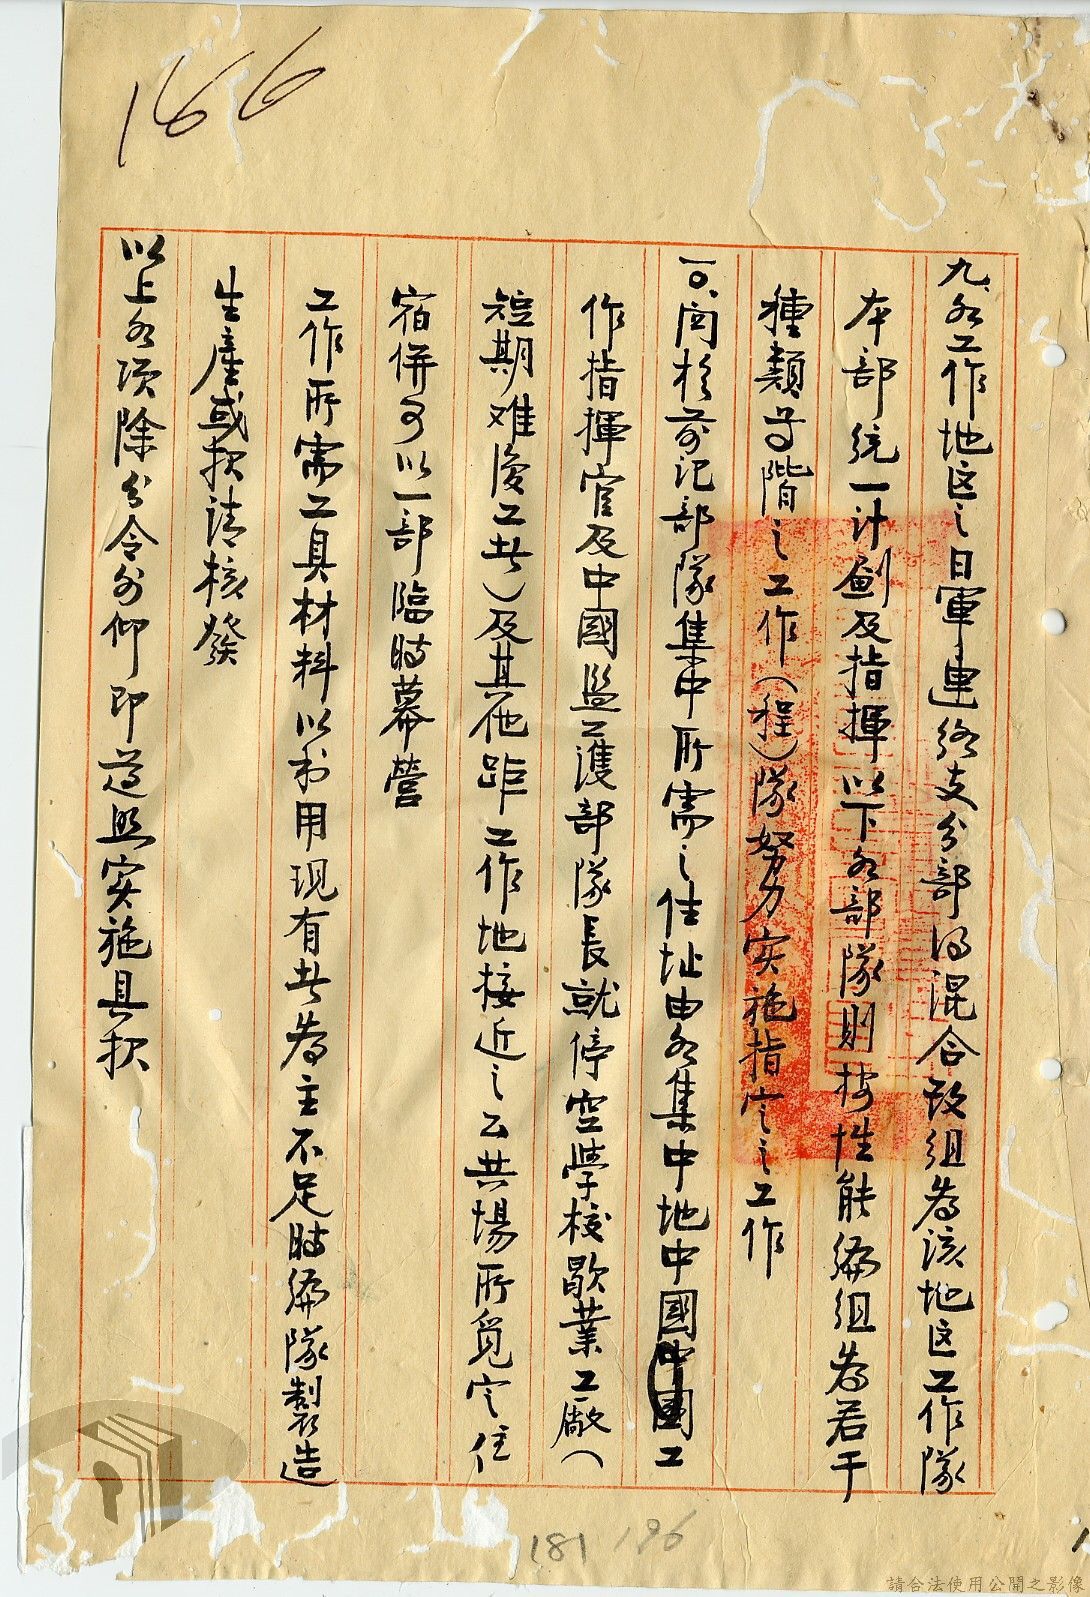 166
九、各工作地区之日軍連絡支分部得混合改組為該地区工作隊
本部統一計劃及指揮以下各部隊則按性能編組為若干
種類等階之工作(程)隊努力实施指定之工作
一〇、関於前記部隊集中所需之住址由各集中地中國工
作指揮官及中國監護部隊長就停空學校歇業工廠(
短期难復工者)及其他距工作地接近之公共場所覓定住
宿併可以一部臨時幕營
工作所需工具材料以利用現有者為主不足時編隊製造
生產或报請核發
以上各項除分令外仰即遵照实施具报
181 196
請合法使用公開之影像